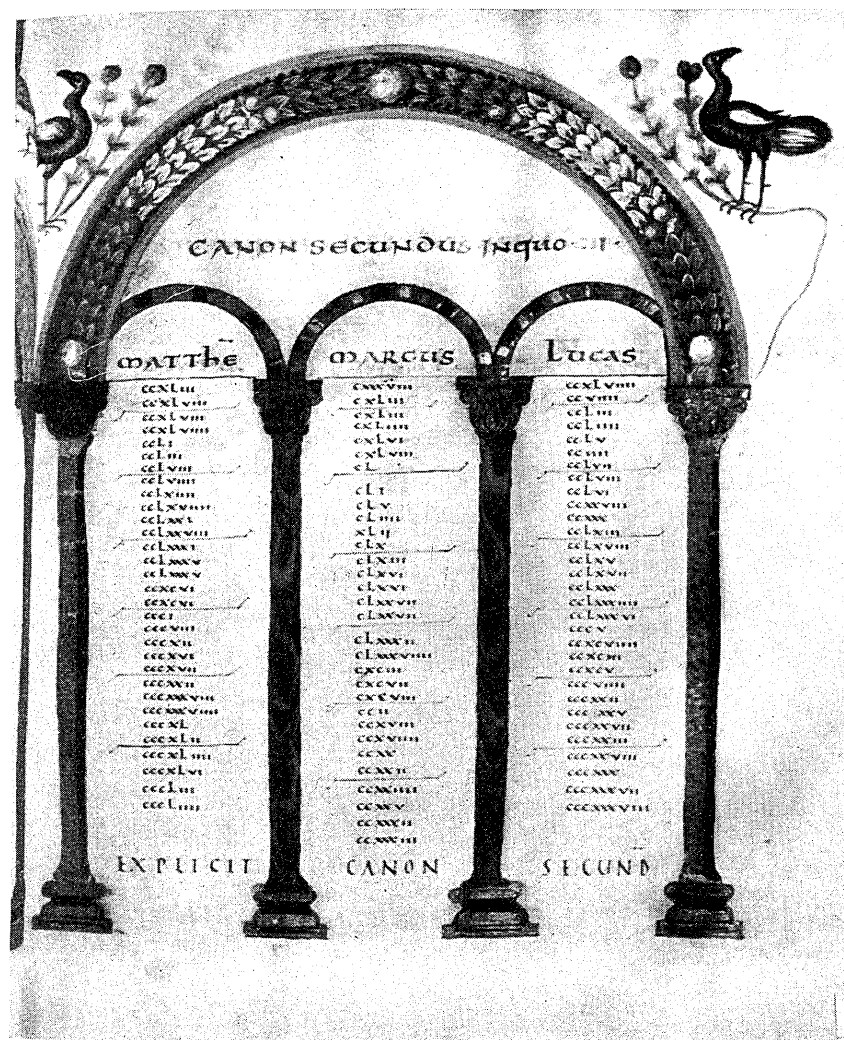 CANON SECUNDUS INQUO
MATTHE
ccxLiii
ccxLviii
ccxLviii
ccxLviiii
ccLi
ccLiii
ccLviii
ccLviiii
ccLxiiii
ccLxviiii
ccLxxi
ccLxxviii
ccLxxxi
ccLxxxv
ccLxxxv
ccxcvi
ccxcvi
ccci
cccviii
cccxii
cccxvi
cccxvii
cccxxii
cccxxxviii
cccxxxviiii
cccxL
cccxLii
cccxLiiii
cccxLvi
cccLiii
cccLiiii
MARCUS
cxxxviii
cxLiii
cxLiii
cxLiiii
cxLvi
cxLviii
cL
cLi
cLv
cLiiii
xLii
cLx
cLxiii
cLxvi
cLxvi
cLxxvii
cLxxvii
cLxxxii
cLxxxviiii
cxciii
cxcvii
cxcviii
ccii
ccxviii
ccxviiii
ccxx
ccxxii
ccxxiiii
ccxxv
ccxxxii
ccxxxiii
LUCAS
ccxLviiii
ccviiii
ccLiii
ccLiiii
ccLv
cciiii
ccLvii
ccLviii
ccLvi
ccxxviii
ccxxx
ccLxiii
ccLxviii
ccLxv
ccLxvii
ccLxxx
ccLxxxiiii
ccLxxxvi
cccv
ccxcviiii
ccxciii
ccxcv
cccviiii
cccxxii
cccxxv
cccxxiii
cccxxviii
cccxxx
cccxxxvii
cccxxxviii
EXPLICIT CANON SECUND